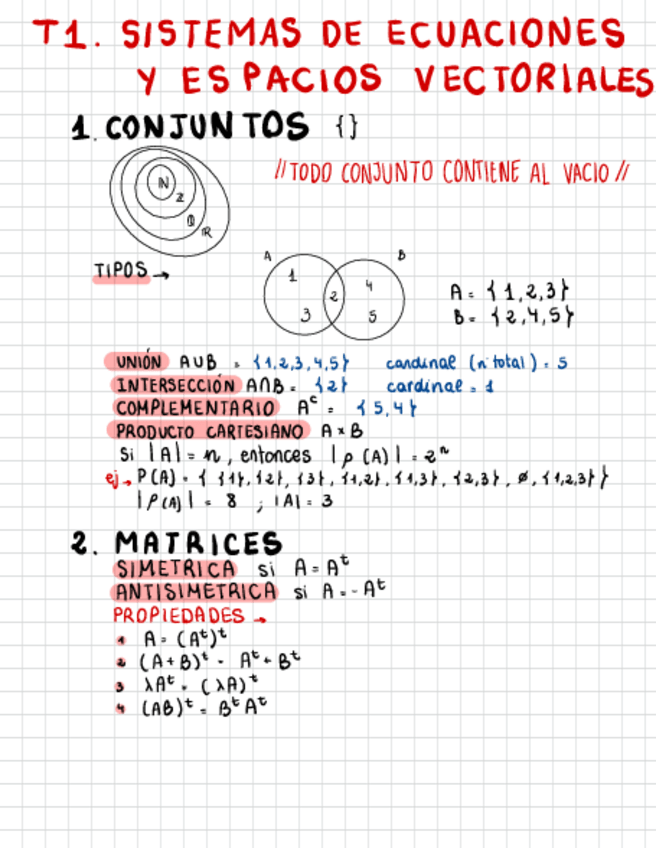 T1. SISTEMAS DE ECUACIONES
Y ESPACIOS VECTORIALES
1. CONJUNTOS {}
//TODO CONJUNTO CONTIENE AL VACIO//
N
Z
Q
R
TIPOS →
A B
1 2 3 4 5
A = {1,2,3}
B = {2,4,5}
UNIÓN A∪B = {1,2,3,4,5} cardinal (nº total) = 5
INTERSECCIÓN A∩B = {2} cardinal = 1
COMPLEMENTARIO Aᶜ = {5,4}
PRODUCTO CARTESIANO A×B
Si |A| = n, entonces |p(A)| = 2ⁿ
ej → P(A) = { {1}, {2}, {3}, {1,2}, {1,3}, {2,3}, ∅, {1,2,3} }
|P(A)| = 8 ; |A| = 3
2. MATRICES
SIMETRICA si A = Aᵗ
ANTISIMETRICA si A = -Aᵗ
PROPIEDADES →
1 A = (Aᵗ)ᵗ
2 (A+B)ᵗ = Aᵗ + Bᵗ
3 λAᵗ = (λA)ᵗ
4 (AB)ᵗ = BᵗAᵗ